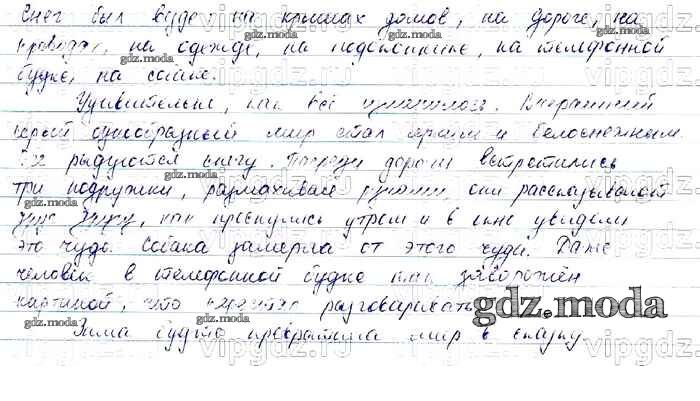 Снег был везде: на крышах домов, на дороге, на
проводах, на одежде, на подоконнике, на телефонной
будке, на собаке.
Удивительно, как всё изменилось. Вчерашний
серый однообразный мир стал ярким и белоснежным.
Все радуются снегу. Посреди дороги встретились
три подружки, размахивая руками, они рассказывают
друг другу, как проснулись утром и в окне увидели
это чудо. Собака замерла от этого чуда. Даже
человек в телефонной будке так заворожён
картиной, что перестал разговаривать
Зима будто превратила мир в сказку.
gdz.moda
vipgdz.ru